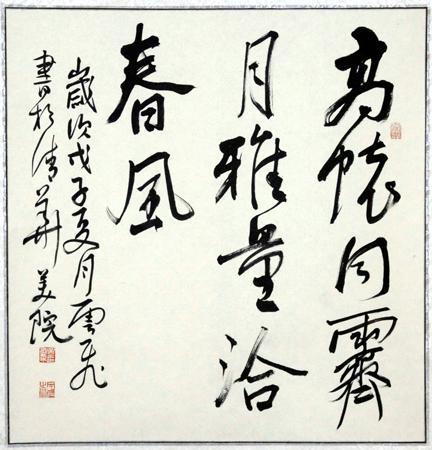 高怀同霽
月雅量洽
春風
歲次戊子夏月雲飛
書於清華美院